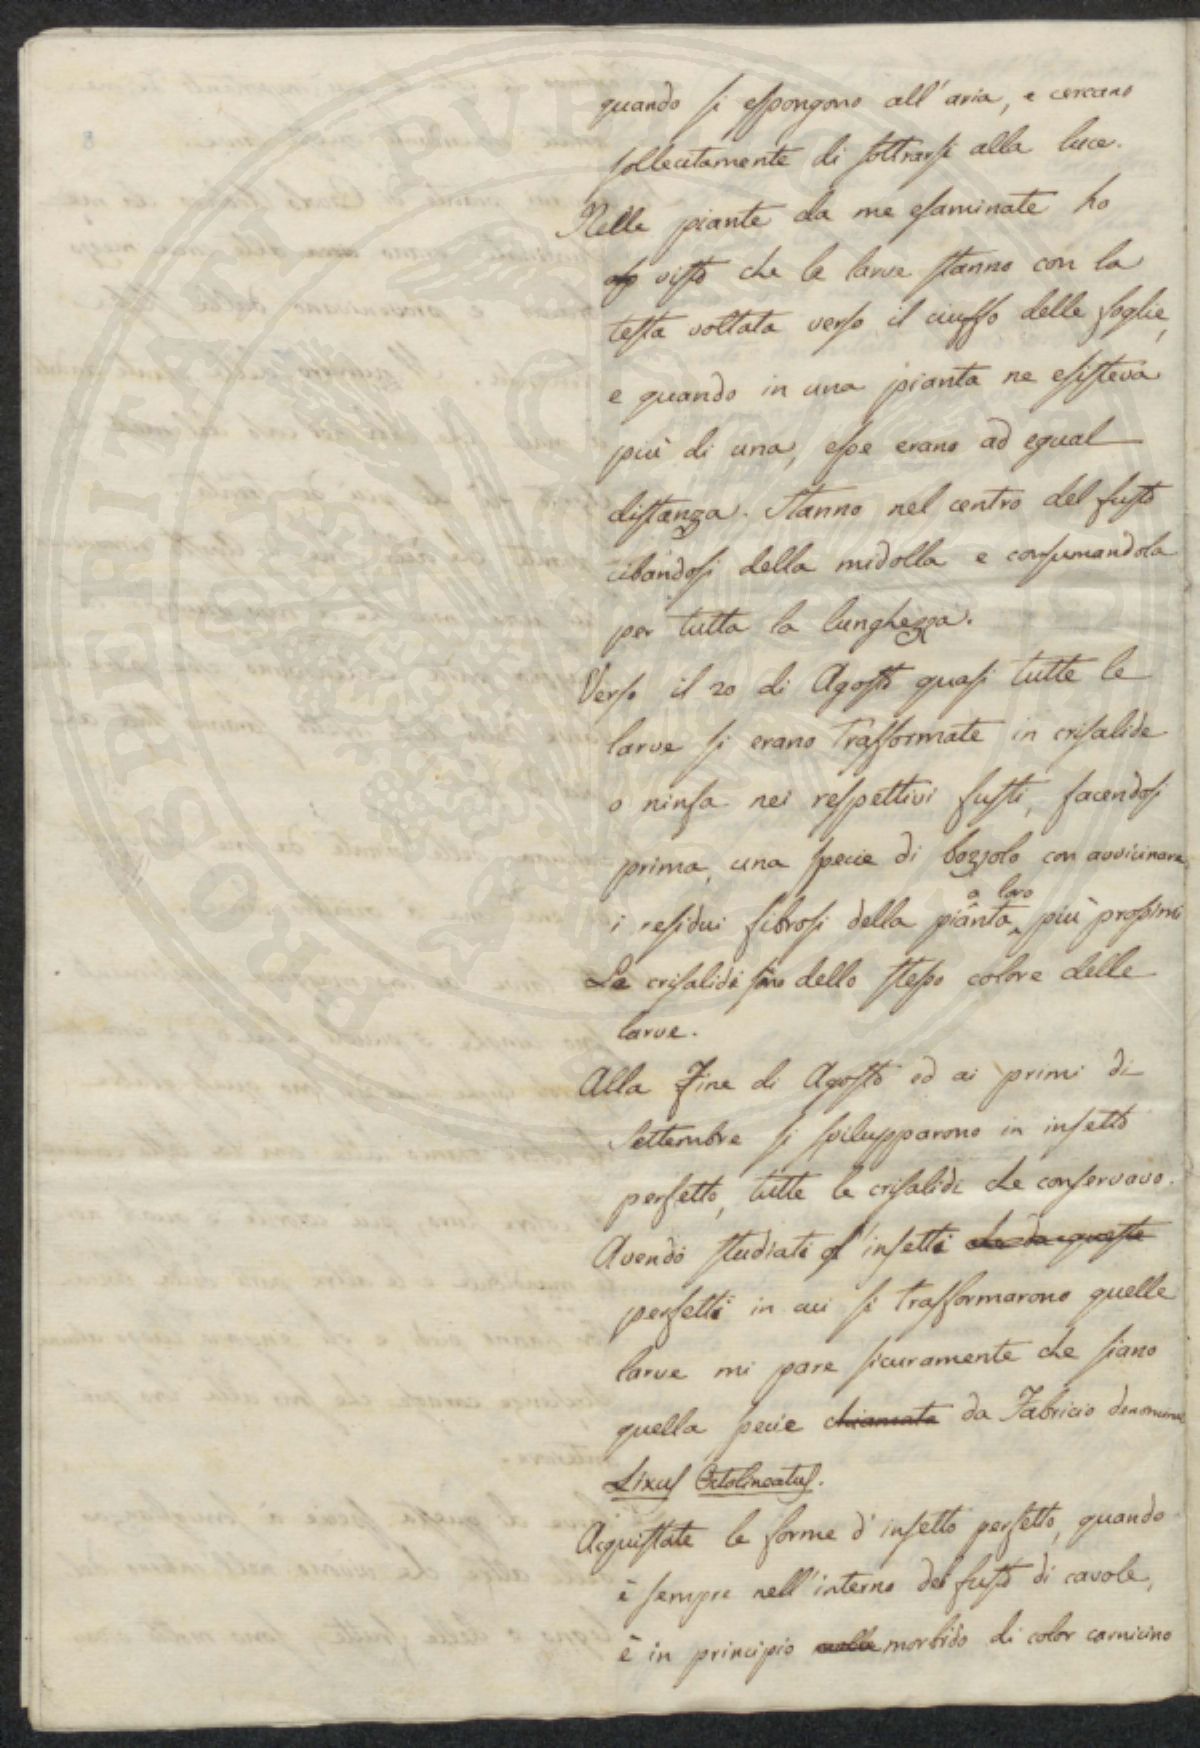 quando si espongono all'aria, e cercano
sollecitamente di sottrarsi alla luce.
Nelle piante da me esaminate ho
visto che le larve stanno con la
testa voltata verso il ciuffo delle foglie,
e quando in una pianta ne esisteva
più di una, esse erano ad egual
distanza. Stanno nel centro del fusto
cibandosi della midolla e consumandola
per tutta la lunghezza.
Verso il 20 di Agosto quasi tutte le
larve si erano trasformate in crisalide
o ninfa nei respettivi fusti, facendosi
prima, una specie di bozzolo con avvicinare
a loro
i residui fibrosi della pianta più prossimi
Le crisalidi sono dello stesso colore delle
larve.
Alla fine di Agosto ed ai primi di
Settembre si svilupparono in insetto
perfetto, tutte le crisalidi che conservavo.
Avendo studiati gl'insetti che da queste
perfetti in cui si trasformarono quelle
larve mi pare sicuramente che siano
quella specie chiamata da Fabricio
Lixus Octolineatus.
Acquistate le forme d'insetto perfetto, quando
è sempre nell'interno del fusto di cavole,
è in principio morbido di color carnicino
PUBLICAE
PROSPERITATI